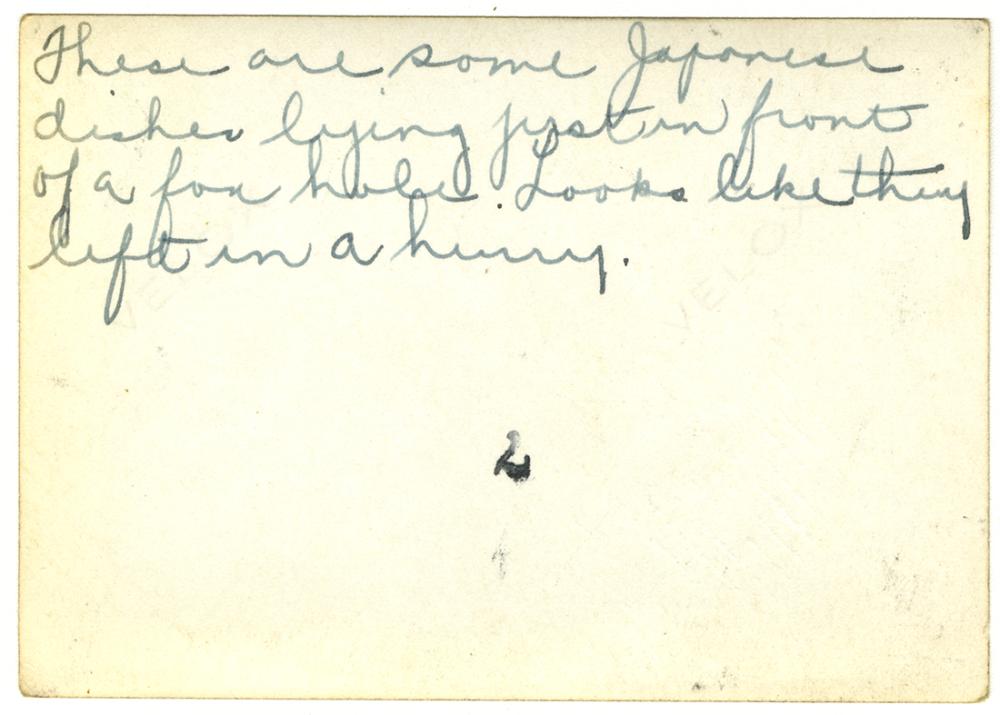 These are some Japanese
dishes lying just in front
of a fox hole. Looks like they
left in a hurry.
VELOX
VELOX
2